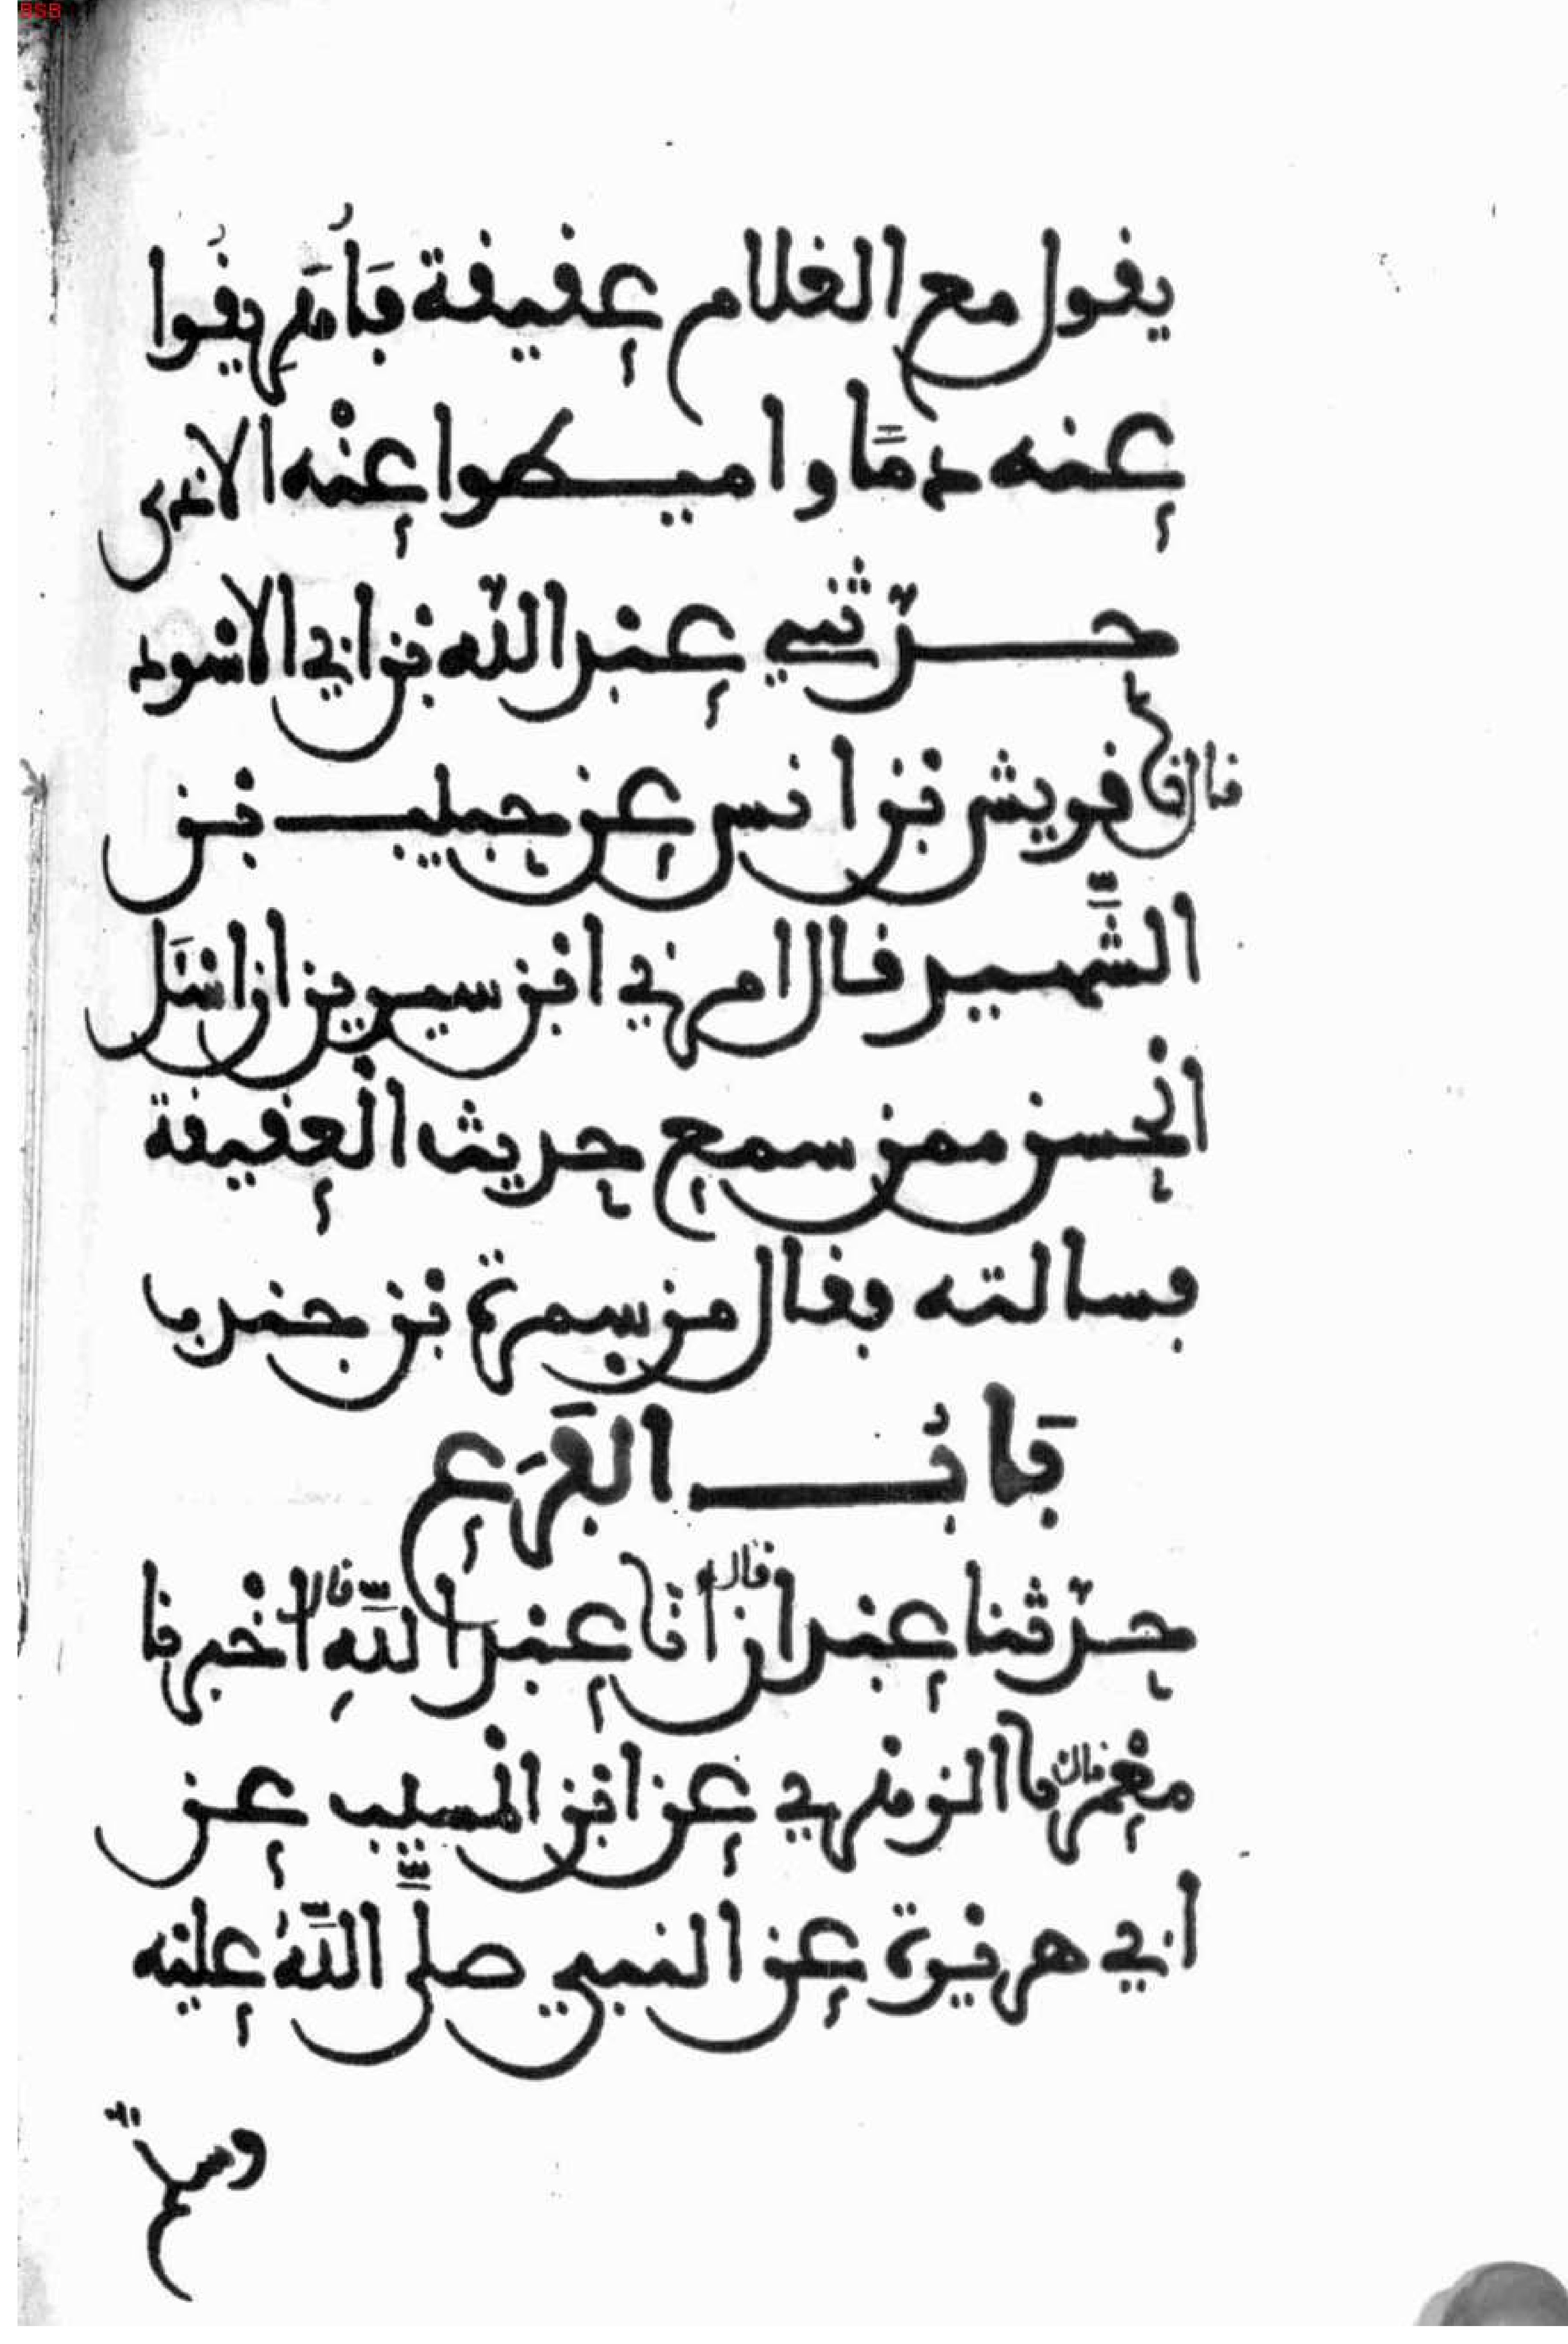 BSB
يقول مع الغلام عقيقة فأهريقوا
عنه دمًا واميطوا عنْه الاذى
حدّثني عبد اللّه بن ابي الاسْود
قال نا قريش بن انس عن حبيب بن
الشَّهيد قال امرني ابن سيرين ان اسْئَل
الْحسن ممن سمع حديث الْعقيقة
فسالته فقال من سمرة بن جندب
بَابُ الفَرَع
حدّثنا عبدان قال انا عبد اللّهِ قال اخْبرنا
معْمر قال نا الزهري عن ابن المْسيب عن
ابي هريْرة عن النبي صلَّى اللَّهُ عليْه
وسلم